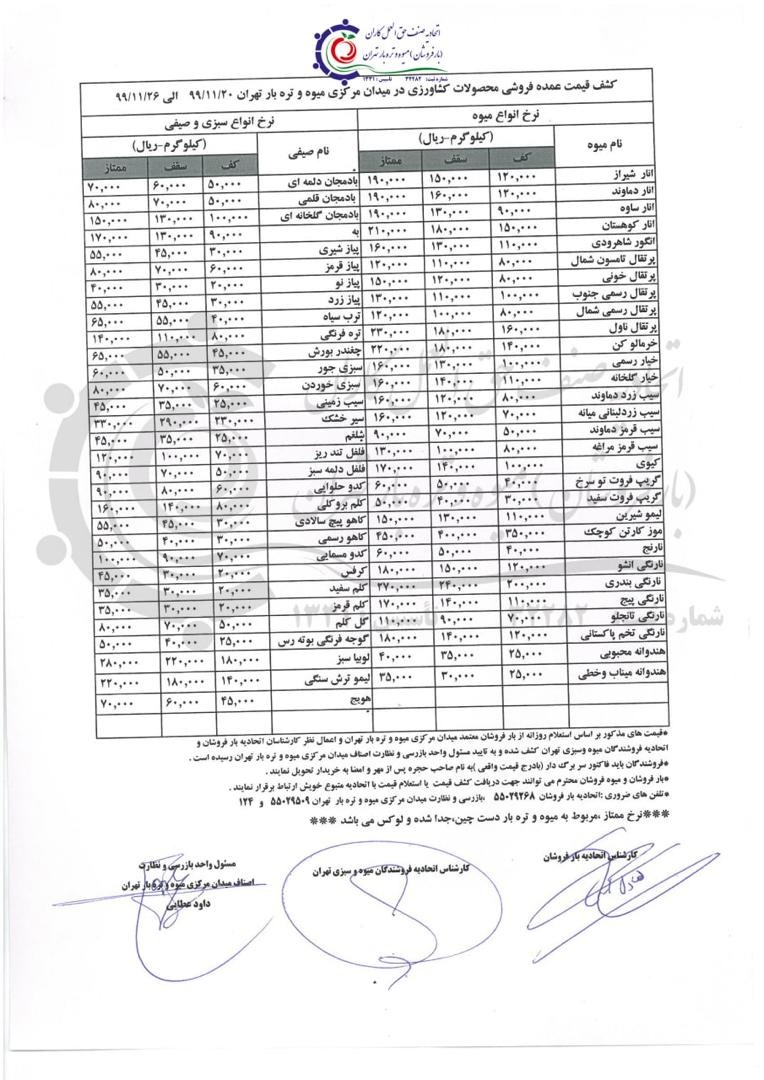 اتحادیه صنف حق العمل کاران
(بارفروشان) میوه و تره بار تهران
شماره ثبت: ۳۲۲۸۲ تاسیس: ۱۳۲۱
کشف قیمت عمده فروشی محصولات کشاورزی در میدان مرکزی میوه و تره بار تهران ۹۹/۱۱/۲۰ الی ۹۹/۱۱/۲۶
نرخ انواع میوه
نام میوه (کیلوگرم-ریال)
کف سقف ممتاز
انار شیراز ۱۲۰,۰۰۰ ۱۵۰,۰۰۰ ۱۹۰,۰۰۰
انار دماوند ۱۲۰,۰۰۰ ۱۶۰,۰۰۰ ۱۹۰,۰۰۰
انار ساوه ۹۰,۰۰۰ ۱۳۰,۰۰۰ ۱۹۰,۰۰۰
انار کوهستان ۱۵۰,۰۰۰ ۱۸۰,۰۰۰ ۲۱۰,۰۰۰
انگور شاهرودی ۱۱۰,۰۰۰ ۱۳۰,۰۰۰ ۱۶۰,۰۰۰
پرتقال تامسون شمال ۸۰,۰۰۰ ۱۱۰,۰۰۰ ۱۲۰,۰۰۰
پرتقال خونی ۸۰,۰۰۰ ۱۲۰,۰۰۰ ۱۵۰,۰۰۰
پرتقال رسمی جنوب ۱۰۰,۰۰۰ ۱۱۰,۰۰۰ ۱۳۰,۰۰۰
پرتقال رسمی شمال ۸۰,۰۰۰ ۱۰۰,۰۰۰ ۱۲۰,۰۰۰
پرتقال ناول ۱۶۰,۰۰۰ ۱۸۰,۰۰۰ ۲۳۰,۰۰۰
خرمالو کن ۱۴۰,۰۰۰ ۱۸۰,۰۰۰ ۲۲۰,۰۰۰
خیار رسمی ۱۰۰,۰۰۰ ۱۳۰,۰۰۰ ۱۶۰,۰۰۰
خیار گلخانه ۱۱۰,۰۰۰ ۱۴۰,۰۰۰ ۱۶۰,۰۰۰
سیب زرد دماوند ۸۰,۰۰۰ ۱۲۰,۰۰۰ ۱۶۰,۰۰۰
سیب زردلبنانی میانه ۷۰,۰۰۰ ۱۲۰,۰۰۰ ۱۶۰,۰۰۰
سیب قرمز دماوند ۵۰,۰۰۰ ۷۰,۰۰۰ ۹۰,۰۰۰
سیب قرمز مراغه ۸۰,۰۰۰ ۱۰۰,۰۰۰ ۱۳۰,۰۰۰
کیوی ۱۰۰,۰۰۰ ۱۴۰,۰۰۰ ۱۷۰,۰۰۰
گریپ فروت تو سرخ ۴۰,۰۰۰ ۵۰,۰۰۰ ۶۰,۰۰۰
گریپ فروت سفید ۳۰,۰۰۰ ۴۰,۰۰۰ ۵۰,۰۰۰
لیمو شیرین ۱۱۰,۰۰۰ ۱۳۰,۰۰۰ ۱۵۰,۰۰۰
موز کارتن کوچک ۳۵۰,۰۰۰ ۴۰۰,۰۰۰ ۴۵۰,۰۰۰
نارنج ۴۰,۰۰۰ ۵۰,۰۰۰ ۶۰,۰۰۰
نارنگی انشو ۱۲۰,۰۰۰ ۱۵۰,۰۰۰ ۱۸۰,۰۰۰
نارنگی بندری ۲۰۰,۰۰۰ ۲۴۰,۰۰۰ ۲۷۰,۰۰۰
نارنگی پیج ۱۱۰,۰۰۰ ۱۴۰,۰۰۰ ۱۷۰,۰۰۰
نارنگی تانجلو ۷۰,۰۰۰ ۹۰,۰۰۰ ۱۱۰,۰۰۰
نارنگی تخم پاکستانی ۱۲۰,۰۰۰ ۱۴۰,۰۰۰ ۱۸۰,۰۰۰
هندوانه محبوبی ۲۵,۰۰۰ ۳۵,۰۰۰ ۴۰,۰۰۰
هندوانه میناب وخطی ۲۵,۰۰۰ ۳۰,۰۰۰ ۳۵,۰۰۰
نرخ انواع سبزی و صیفی
نام صیفی (کیلوگرم-ریال)
کف سقف ممتاز
بادمجان دلمه ای ۵۰,۰۰۰ ۶۰,۰۰۰ ۷۰,۰۰۰
بادمجان قلمی ۵۰,۰۰۰ ۷۰,۰۰۰ ۸۰,۰۰۰
بادمجان گلخانه ای ۱۰۰,۰۰۰ ۱۳۰,۰۰۰ ۱۵۰,۰۰۰
به ۹۰,۰۰۰ ۱۳۰,۰۰۰ ۱۷۰,۰۰۰
پیاز شیری ۳۰,۰۰۰ ۴۵,۰۰۰ ۵۵,۰۰۰
پیاز قرمز ۶۰,۰۰۰ ۷۰,۰۰۰ ۸۰,۰۰۰
پیاز نو ۲۰,۰۰۰ ۳۰,۰۰۰ ۴۰,۰۰۰
پیاز زرد ۳۰,۰۰۰ ۴۵,۰۰۰ ۵۵,۰۰۰
ترب سیاه ۴۰,۰۰۰ ۵۵,۰۰۰ ۶۵,۰۰۰
تره فرنگی ۸۰,۰۰۰ ۱۱۰,۰۰۰ ۱۴۰,۰۰۰
چغندر بورش ۴۵,۰۰۰ ۵۵,۰۰۰ ۶۵,۰۰۰
سبزی جور ۳۵,۰۰۰ ۵۰,۰۰۰ ۶۰,۰۰۰
سبزی خوردن ۶۰,۰۰۰ ۷۰,۰۰۰ ۸۰,۰۰۰
سیب زمینی ۲۵,۰۰۰ ۳۵,۰۰۰ ۴۵,۰۰۰
سیر خشک ۲۳۰,۰۰۰ ۲۹۰,۰۰۰ ۳۳۰,۰۰۰
شلغم ۲۵,۰۰۰ ۳۵,۰۰۰ ۴۵,۰۰۰
فلفل تند ریز ۷۰,۰۰۰ ۱۰۰,۰۰۰ ۱۲۰,۰۰۰
فلفل دلمه سبز ۵۰,۰۰۰ ۷۰,۰۰۰ ۹۰,۰۰۰
کدو حلوایی ۶۰,۰۰۰ ۸۰,۰۰۰ ۹۰,۰۰۰
کلم بروکلی ۸۰,۰۰۰ ۱۴۰,۰۰۰ ۱۶۰,۰۰۰
کاهو پیچ سالادی ۳۰,۰۰۰ ۴۵,۰۰۰ ۵۵,۰۰۰
کاهو رسمی ۳۰,۰۰۰ ۴۰,۰۰۰ ۵۰,۰۰۰
کدو مسمایی ۷۰,۰۰۰ ۹۰,۰۰۰ ۱۰۰,۰۰۰
کرفس ۲۰,۰۰۰ ۳۰,۰۰۰ ۴۵,۰۰۰
کلم سفید ۲۰,۰۰۰ ۳۰,۰۰۰ ۳۵,۰۰۰
کلم قرمز ۲۰,۰۰۰ ۳۰,۰۰۰ ۳۵,۰۰۰
گل کلم ۵۰,۰۰۰ ۷۰,۰۰۰ ۸۰,۰۰۰
گوجه فرنگی بوته رس ۲۵,۰۰۰ ۴۰,۰۰۰ ۵۰,۰۰۰
لوبیا سبز ۱۸۰,۰۰۰ ۲۲۰,۰۰۰ ۲۸۰,۰۰۰
لیمو ترش سنگی ۱۴۰,۰۰۰ ۱۸۰,۰۰۰ ۲۲۰,۰۰۰
هویج ۴۵,۰۰۰ ۶۰,۰۰۰ ۷۰,۰۰۰
*قیمت های مذکور بر اساس استعلام روزانه از بار فروشان معتمد میدان مرکزی میوه و تره بار تهران و اعمال نظر کارشناسان اتحادیه بار فروشان و
اتحادیه فروشندگان میوه وسبزی تهران کشف شده و به تایید مسئول واحد بازرسی و نظارت اصناف میدان مرکزی میوه و تره بار تهران رسیده است .
*فروشندگان باید فاکتور سر برگ دار (بادرج قیمت واقعی )به نام صاحب حجره پس از مهر و امضا به خریدار تحویل نمایند .
*بار فروشان و میوه فروشان محترم می توانند جهت دریافت کشف قیمت یا استعلام قیمت با اتحادیه متبوع خویش ارتباط برقرار نمایند .
*تلفن های ضروری :اتحادیه بار فروشان ۵۵۰۲۹۲۶۸ ،بازرسی و نظارت میدان مرکزی میوه و تره بار تهران ۵۵۰۲۹۵۰۹ و ۱۲۴
***نرخ ممتاز ,مربوط به میوه و تره بار دست چین,جدا شده و لوکس می باشد ***
کارشناس اتحادیه بار فروشان
کارشناس اتحادیه فروشندگان میوه و سبزی تهران
مسئول واحد بازرسی و نظارت
اصناف میدان مرکزی میوه و تره بار تهران
داود عطایی